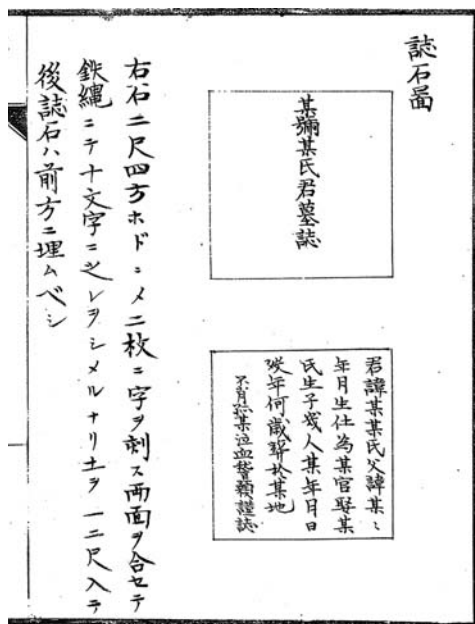 誌石圖
某號某氏君墓誌
君諱某某氏父諱某〻
年月生仕為某官娶某
氏生子幾人某年月日
歿年何歳葬於某地
不肖孤某泣血稽顙謹誌
右石二尺四方ホドニ〆二枚ニ字ヲ刺ス両面ヲ合セテ
鉄縄ニテ十文字ニ之レヲシメルナリ土ヲ一二尺入テ
後誌石ハ前方ニ埋ムベシ